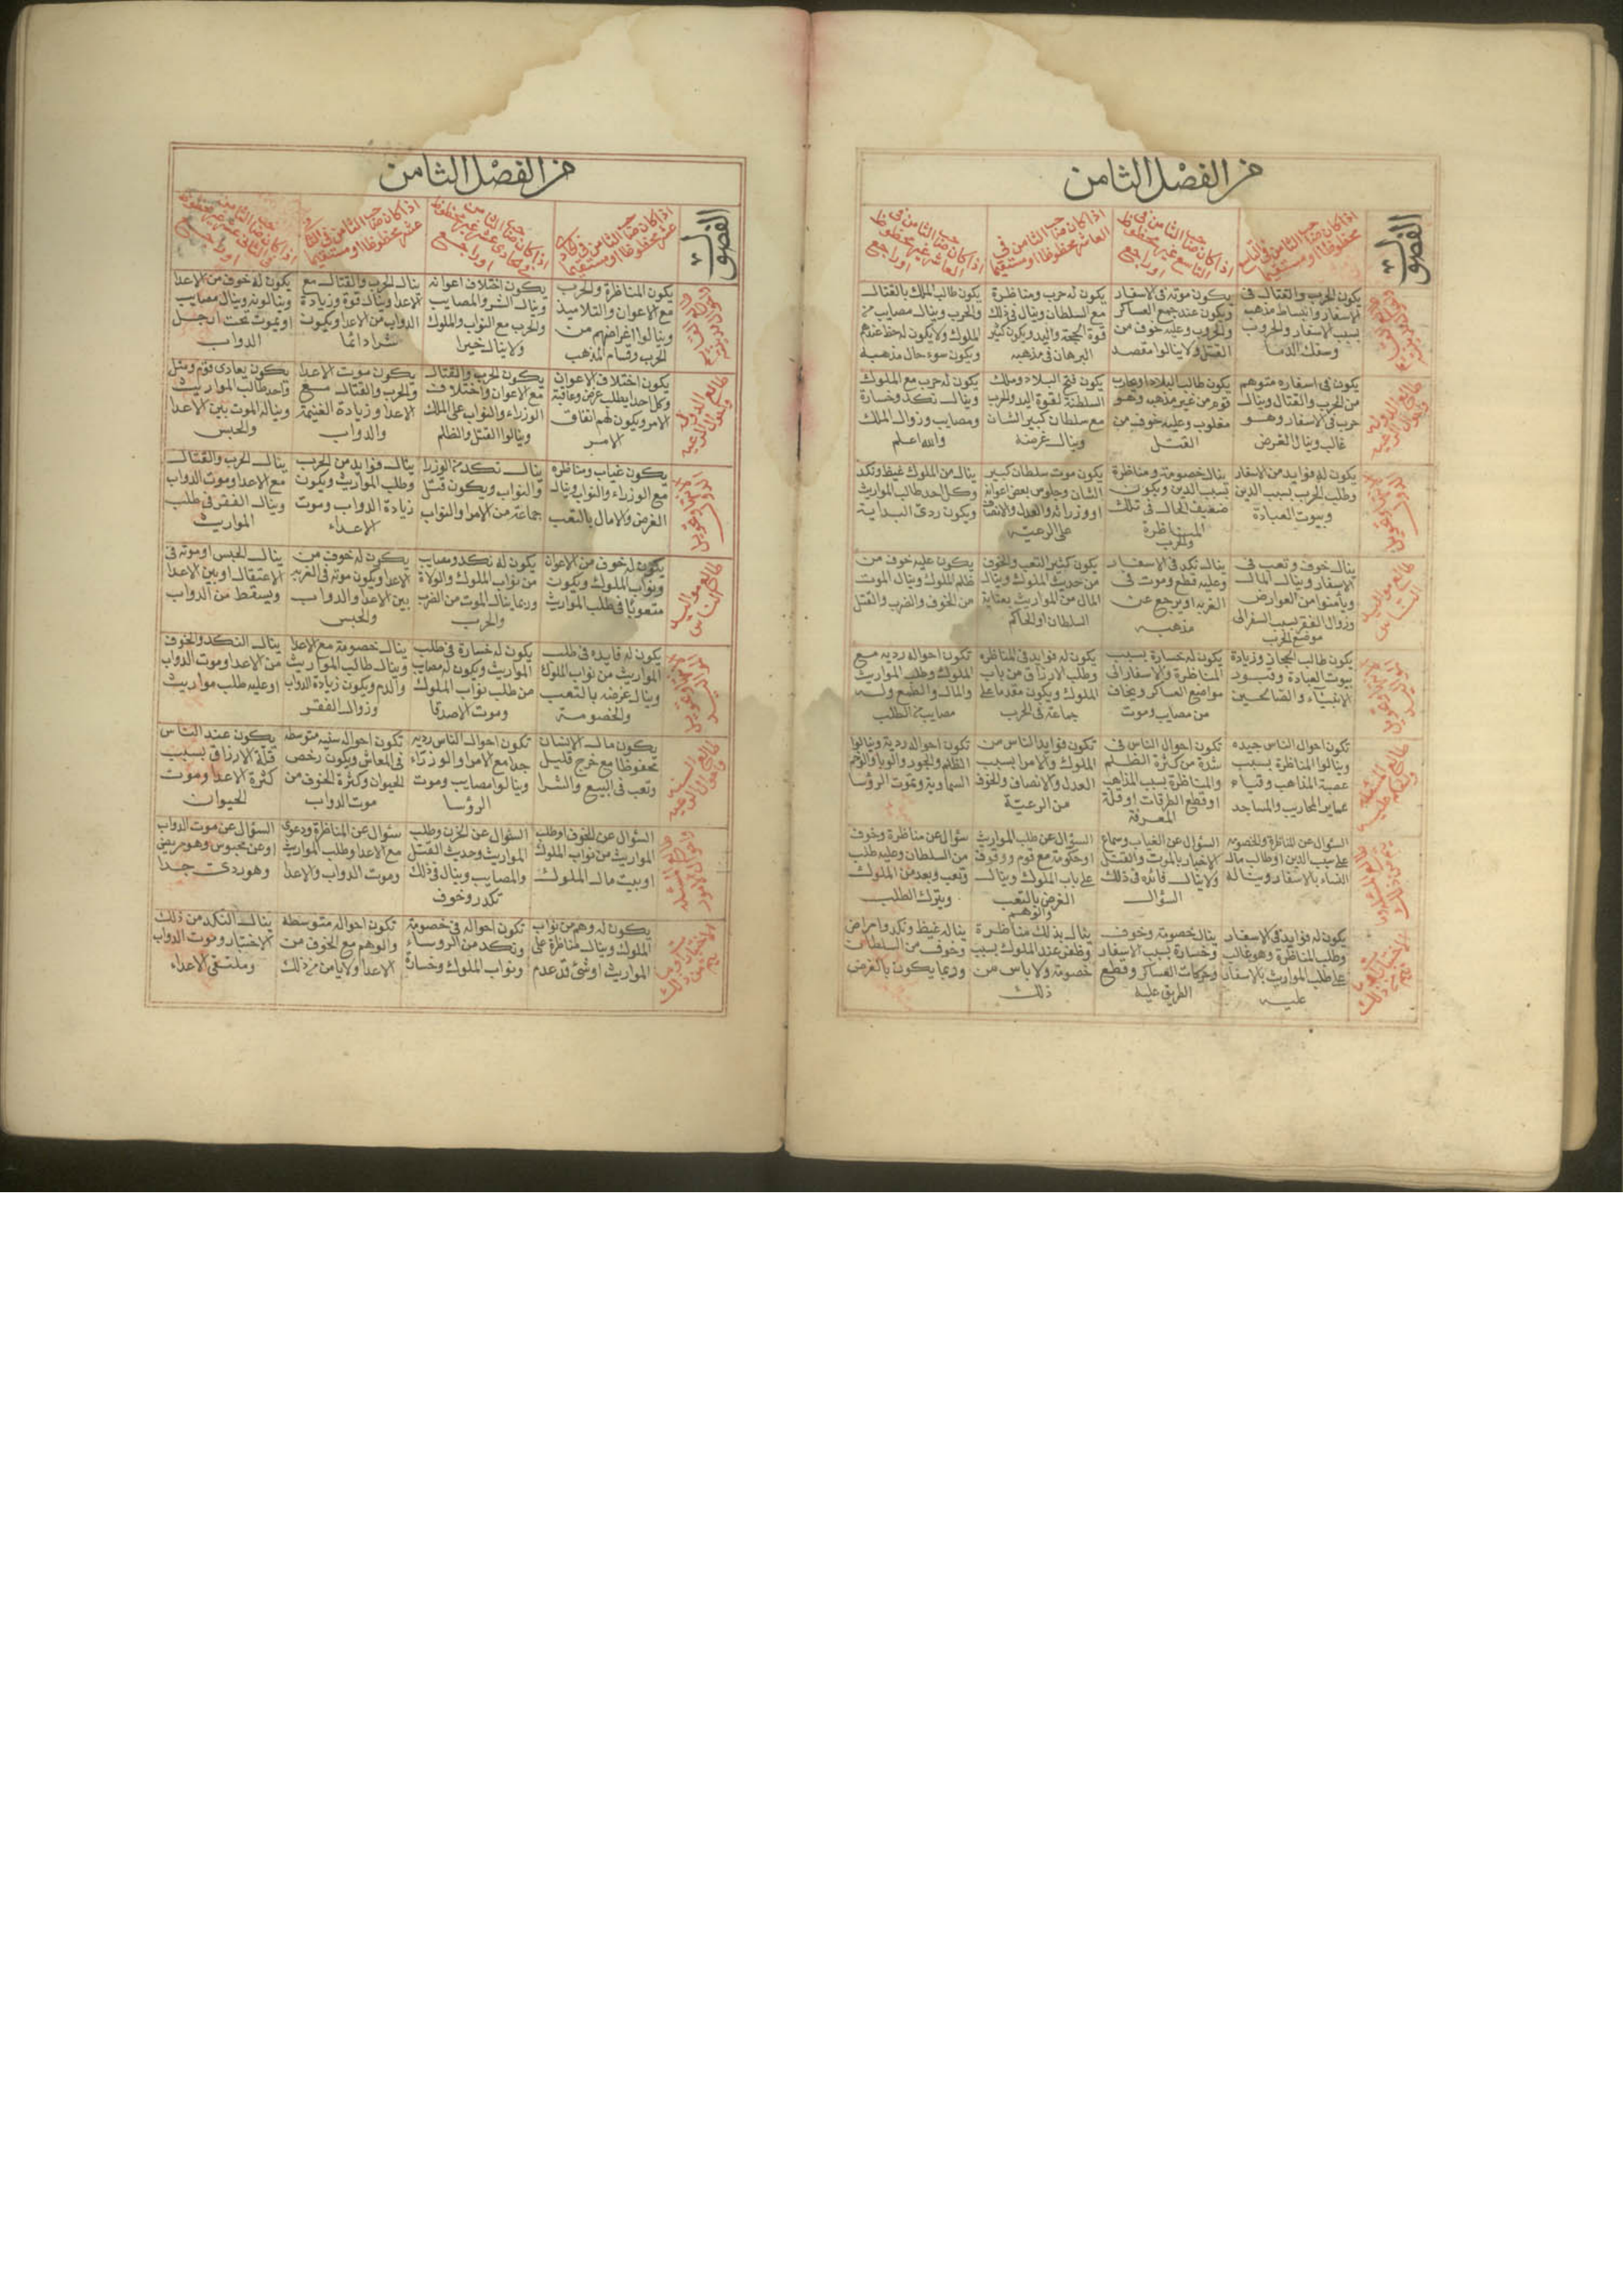 من الفصل الثامن
الفصول
اذا كان صاحب الثامن في التاسع
محظوظا او مستقيما
اذا كان صاحب الثامن في
التاسع غير محظوظ
او راجع
اذا كان صاحب الثامن في
العاشر محظوظا او مستقيما
اذا كان صاحب الثامن في
العاشر غير محظوظ
او راجع
يكون الحرب والقتال في
الاسفار وانبساط مذهب
بسبب الاسفار والحروب
وسفك الدما
يكون موته في الاسفار
ويكون عند جمع العساكر
والحروب وعليه خوف من
القتل ولا ينالوا مقصد
يكون له حرب ومناظرة
مع السلطان وينال في ذلك
قوة الحجة واليد ويكون كثير
البرهان في مذهبه
يكون طالب الملك بالقتال
والحرب وينال مصايب من
الملوك ولا يكون له حظ عندهم
ويكون سوء حال مذهبه
طالع الدولة
يكون في اسفاره متوهم
من الحرب والقتال وينال
حرب في الاسفار وهو
غالب وينال الغرض
يكون طالب البلاد او يحارب
قوم من غير مذهبه وهو
مغلوب وعليه خوف من
القتل
يكون فتح البلاد وملك
السلطنة لقوة اليد والحرب
مع سلطان كبير الشان
وينال غرضه
يكون له حرب مع الملوك
وينال نكد وخسارة
ومصايب وزوال الملك
والله اعلم
يكون له فوايد من الاسفار
وطلب الحرب لسبب الدين
وبيوت العبادة
ينال خصومة ومناظرة
بسبب الدين ويكون
ضعيف الحال في تلك
المناظرة
والحرب
يكون موت سلطان كبير
الشان وجلوس بعض اعوانه
او وزرائه والعدل والانصاف
على الرعية
ينال من الملوك غيظ ونكد
وكل احد طالب المواريث
ويكون ردي البداية
طالع مواليد
الناس
ينال خوف وتعب في
الاسفار وينال المال
ويأمنوا من العوارض
وزوال الفقر بسبب السفر الى
موضع الحرب
ينال نكد في الاسفار
وعليه قطع وموت في
الغربة او يرجع عن
مذهبه
يكون كثير التعب والخوف
من حديث الملوك وينال
المال من المواريث بعناية
السلطان او الحاكم
يكون عليه خوف من
ظلم الملوك وينال الموت
من الخوف والضرب والقتل
يكون طالب الحجاز وزيادة
بيوت العبادة وقبور
الانبياء والصالحين
يكون له خسارة بسبب
المناظرة والاسفار الى
مواضع العساكر ويخاف
من مصايب وموت
يكون له فوايد في المناظرة
وطلب الارزاق من باب
الملوك ويكون مقدما على
جماعة في الحرب
تكون احواله ردية مع
الملوك وطلب المواريث
والمال والطمع وله
مصايب من الطلب
تكون احوال الناس جيده
وينالوا المناظرة بسبب
عصبة المذاهب
عماير المحاريب والمساجد
تكون احوال الناس في
شدة من كثرة الظلم
والمناظرة بسبب المذاهب
او قطع الطرقات او قلة
المعرفة
تكون فوايد الناس من
الملوك والامرا بسبب
العدل والانصاف والخوف
من الرعية
تكون احواله ردية وينالوا
الظلم والجور والوبا والوخم
السماوية وتموت الرؤسا
السؤال عن المناظرة والخصومة
على سبب الدين او طالب مال
النساء بالاسفار ويناله
السؤال عن الغياب وسماع
الاخبار بالموت والقتل
ولا ينال فائده في ذلك
السؤال
السؤال عن طلب المواريث
او حكومة مع قوم ووقوف
على باب الملوك وينال
الغرض بالتعب
والوهم
سؤال عن مناظرة وخوف
من السلطان وعليه طلب
وتعب وبعد من الملوك
ويترك الطلب
يكون له فوايد في الاسفار
وطلب المناظرة وهو غالب
على طلب المواريث بالاسفار
عليه
ينال خصومة وخوف
وخسارة بسبب الاسفار
وحركات العساكر وقطع
الطريق عليه
ينال بذلك مناظرة
وظفر عند الملوك بسبب
خصومة ولا باس من
ذلك
يناله غيظ ونكد وامراض
وخوف من السلطان
وربما يكون بالغرض
من الفصل الثامن
الفصول
اذا كان صاحب الثامن في الحادي
عشر محظوظا او مستقيما
اذا كان صاحب الثامن
في الحادي عشر غير محظوظ
او راجع
اذا كان صاحب الثامن في الثاني
عشر محظوظا او مستقيما
اذا كان صاحب الثامن
في الثاني عشر غير محظوظ
او راجع
يكون المناظرة والحرب
مع الاعوان والتلاميذ
وينالوا اغراضهم من
الحرب وقسام المذهب
يكون اختلاف اعوانه
وينال الشر والمصايب
والحرب مع النواب والملوك
ولا ينال خيرا
ينال الحرب والقتال مع
الاعدا وينال قوة وزيادة
الدواب من الاعدا ويكون
شرا دائما
يكون له خوف من الاعدا
وينالونه وينال مصايب
او يموت تحت ارجل
الدواب
يكون اختلاف الاعوان
وكل احد يطلب غرض وعاقبة
الامر ويكون لهم اتفاق
الامر
يكون الحرب والقتال
مع الاعوان واختلاف
الوزراء والنواب على الملك
وينالوا القتل والظلم
يكون موت الاعدا
والحرب والقتال مع
الاعدا وزيادة الغنيمة
والدواب
يكون يعادي قوم ومثل
واحد طالب المواريث
ويناله الموت بين الاعدا
والحبس
يكون غياب ومناظره
مع الوزراء والنواب وينال
الغرض والامال بالتعب
ينال نكد من الوزرا
والنواب ويكون قتل
جماعة من الامرا والنواب
ينال فوايد من الحرب
وطلب المواريث ويكون
زيادة الدواب وموت
الاعداء
ينال الحرب والقتال
مع الاعدا وموت الدواب
وينال الفقر في طلب
المواريث
طالع مواليد
الناس
يكون له خوف من الاعوان
ونواب الملوك ويكون
متعوبا في طلب المواريث
يكون له نكد ومصايب
من نواب الملوك والولاة
وربما ينال الموت من الضرب
والحرب
يكون له خوف من
الاعدا ويكون موته في الغربة
بين الاعدا والدواب
والحبس
ينال الحبس او موته في
الاعتقال او بين الاعدا
ويسقط من الدواب
يكون له فايده في طلب
المواريث من نواب الملوك
وينال غرضه بالتعب
والخصومة
يكون له خسارة في طلب
المواريث ويكون له مصايب
من طلب نواب الملوك
وموت الاصدقا
ينال خصومة مع الاعدا
وينال طالب المواريث
والدم ويكون زيادة الدواب
وزوال الفقر
ينال النكد والخوف
من الاعدا وموت الدواب
او عليه طلب مواريث
يكون مال الانسان
محفوظا مع خرج قليل
وتعب في البيع والشرا
تكون احوال الناس رديه
جدا مع الامرا والوزراء
وينالوا مصايب وموت
الرؤسا
تكون احواله سنيه متوسطة
في المعاش ويكون رخص
الحيوان وكثرة الخوف من
موت الدواب
يكون عند الناس
قلة الارزاق بسبب
كثرة الاعدا وموت
الحيوان
السؤال عن الخوف او طلب
المواريث من نواب الملوك
او بيت مال الملوك
السؤال عن الحزن وطلب
المواريث وحديث القتل
والمصايب وينال في ذلك
نكد وخوف
سئوال عن المناظرة ودعوى
مع الاعدا وطلب المواريث
وموت الدواب والاعدا
السؤال عن موت الدواب
او عن محبوس وهو مريض
وهو ردي جدا
يكون له وهم من نواب
الملوك وينال مناظرة على
المواريث او شئ قد عدم
تكون احواله في خصومة
ونكد من الروساء
ونواب الملوك وخسارة
تكون احواله متوسطة
والوهم مع الخوف من
الاعدا ولا يامن من ذلك
ينال النكد من ذلك
الاختيار وموت الدواب
وملتقى الاعداء